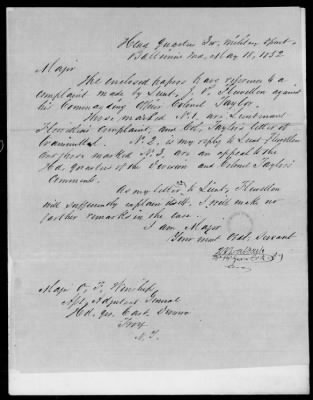 Head Quarters 3rd. Military Dept.
Baltimore Md, May 18, 1852
Major
The enclosed papers have reference to a
complaint made by Lieut. J. P. Flewellen against
his Commanding Officer Colonel Taylor.
Those marked N.1. are Lieutenant
Flewellen's Complaint, and Col. Taylor's letter of
transmittal. N.2. is my reply to Lieut. Flewellen
and those marked N.3. are an appeal to the
Hd. Quarters of the Division and Colonel Taylor's
Comments.
As my letter to Lieut. Flewellen
will sufficiently explain itself. I will make no
further remarks in the case.
I am, Major
Your most Obdt. Servant
Major O. F. Winship
Asst. Adjutant General
Hd. Qrs. East. Division
Troy
N. Y.